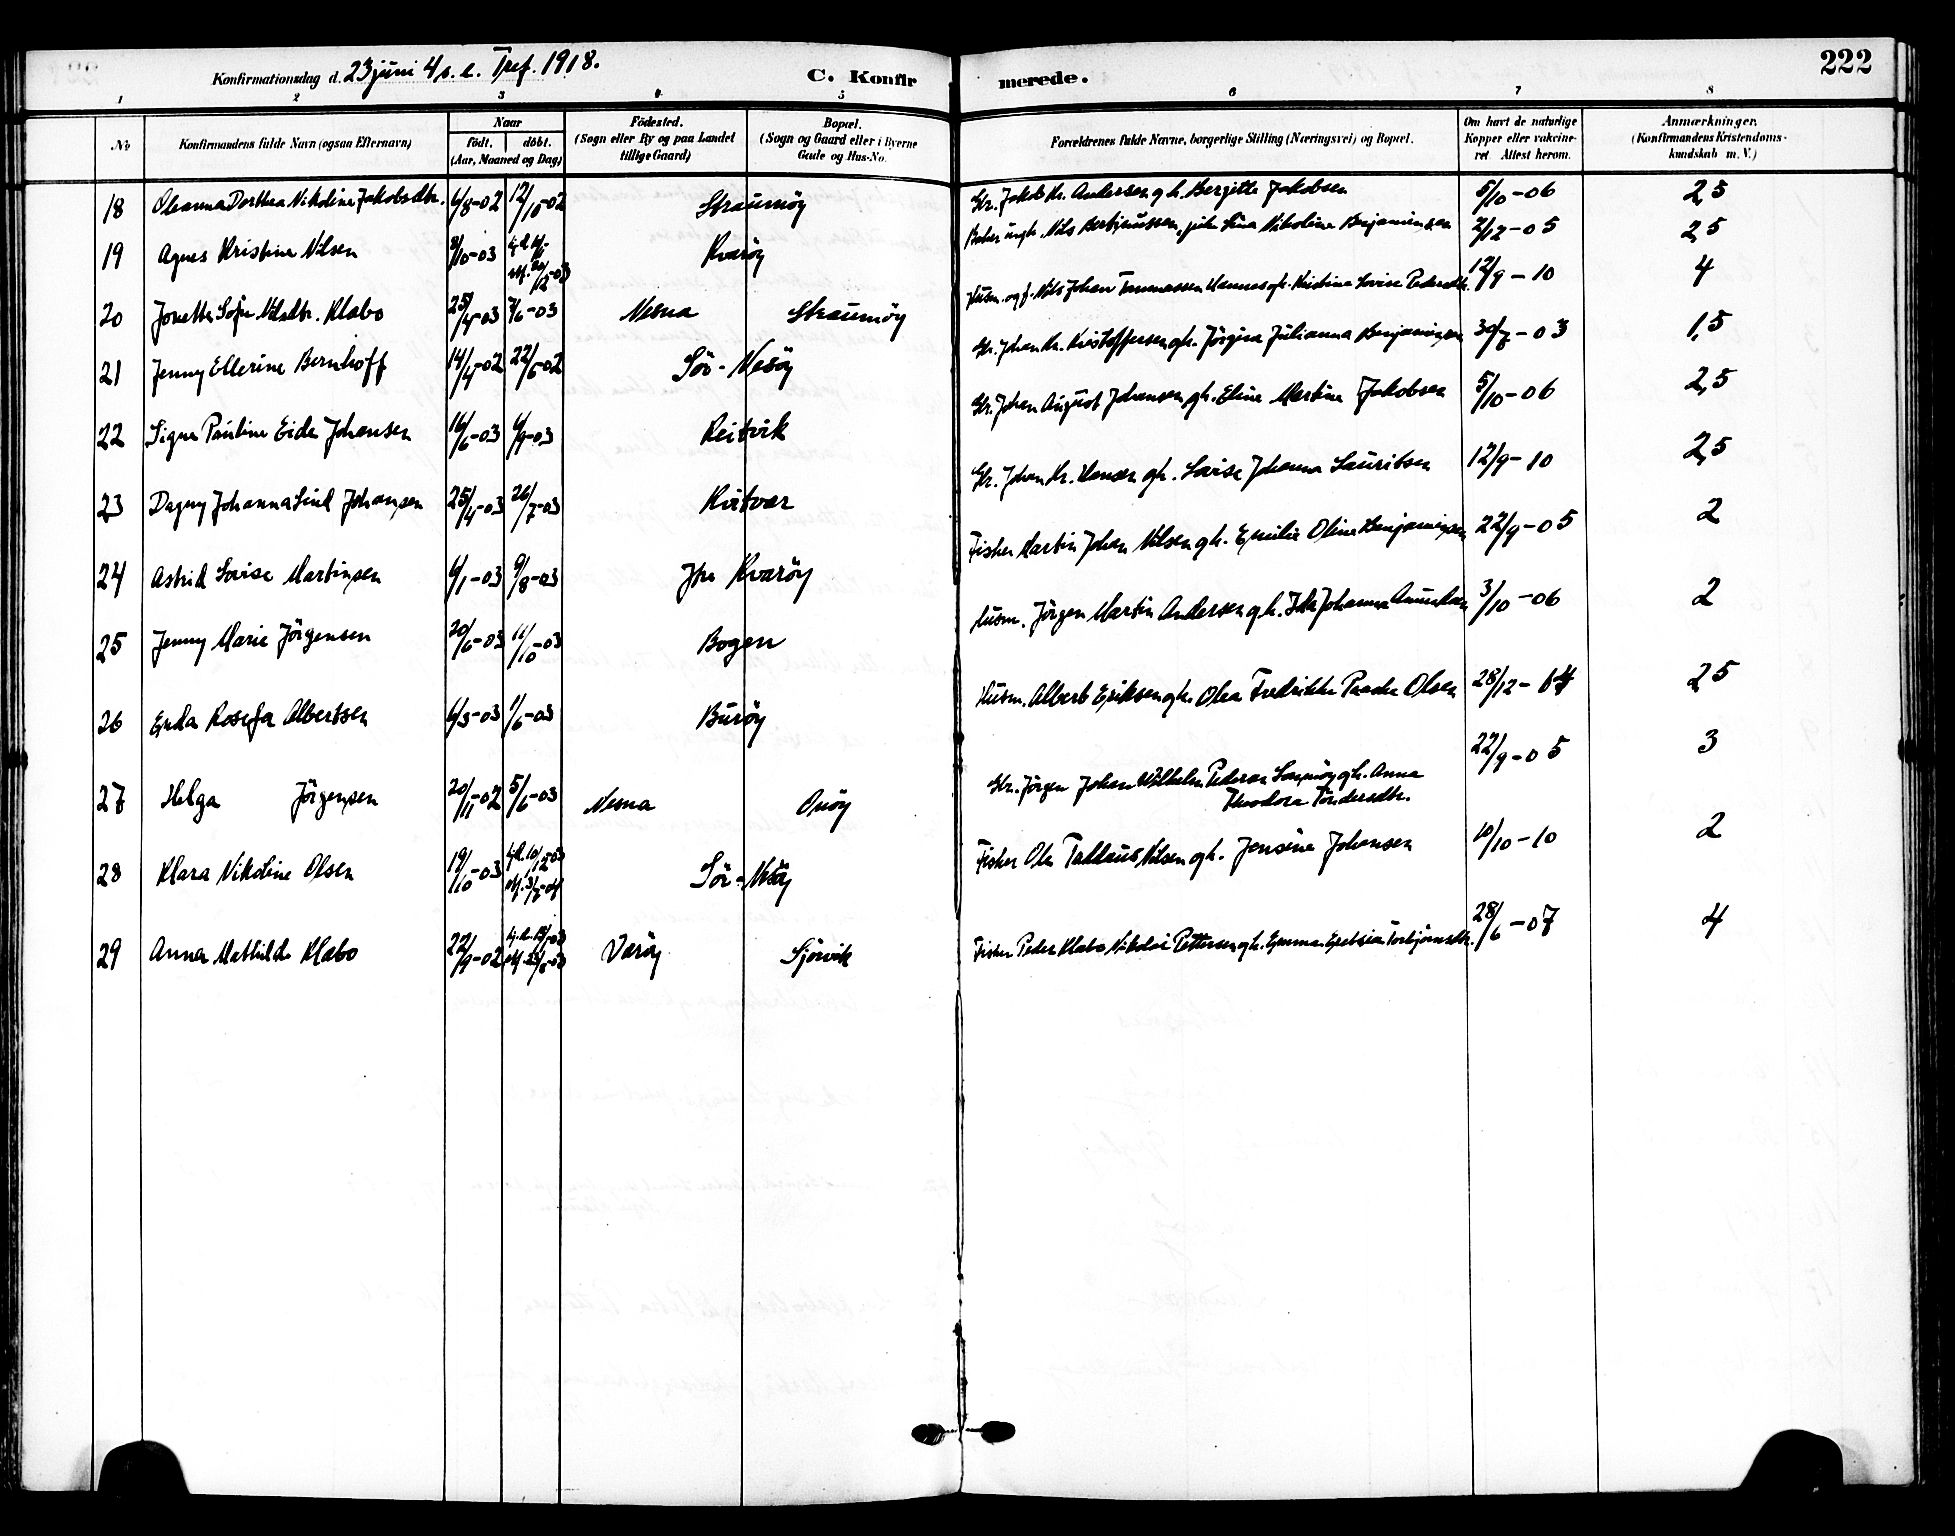 222
Konfirmationsdag d. 23 juni 4 s. e. Tref. 1918.
C. Konfirmerede.
1 2 3 4 5 6 7 8
No
Konfirmandens fulde Navn (ogsaa Efternavn)
Naar
født. døbt.
(Aar, Maaned og Dag)
Födested.
(Sogn eller By og paa Landet
tillige Gaard)
Bopæl.
(Sogn og Gaard eller i Byerne
Gade og Hus-No.
Forældrenes fulde Navne, borgerlige Stilling (Næringsvei) og Bopæl.
Om havt de naturlige
Kopper eller vakcine-
ret Attest herom.
Anmærkninger.
(Konfirmandens Kristendoms-
kundskab m. V.)
18 Oleanna Dorthea Nikoline Jakobsdtr. 6/8-02 12/10-02 Straumöy Gr. Jakob Kr. Andersen gh. Bergitte Jakobsen 5/10-06 2,5
19 Agnes Kristine Nilsen 8/10-03 Kvaröy ungk. Nils pike Nikoline Benjaminsen 2/12-05 2,5
20 Nilsdtr. Klabo 25/4-03 7/6-03 Nesna Straumöy Husm. og f. Nils Johan Hannes gh. Kristine Lovise Pedersdtr. 12/9-10 4
21 Jenny Ellerine Bernhoff 14/4-02 22/6-02 Sör-Nesöy Gr. Johan Kr. Kristoffersen gh. Jörgine Julianna Benjaminsen 30/7-03 1,5
22 Signe Pauline Eide Johansen 16/6-03 6/9-03 Reitvik Gr. Johan August Johansen gh. Eline Martine Jakobsen 5/10-06 2,5
23 Dagny Johanna Lind Johansen 25/4-03 26/7-03 Kvitvær Gr. Johan Kr. gh. Lovise Johanna Lauritsen 12/9-10 2,5
24 Astrid Lovise Martinsen 6/1-03 9/8-03 Kvaröy Fisker Martin Johan Nilsen gh. Emilie Oline Benjaminsen 22/9-05 2
25 Jenny Marie Jörgensen 20/6-03 11/10-03 Bogen Husm. Jörgen Martin Andersen gh. Ida Johanna Amundsen 3/10-06 2
26 Rosefa Albertsen 6/3-03 1/6-03 Buröy Husm. Albert Eriksen gh. Olea Fredrikke Olsen 28/12- 2,5
27 Helga Jörgensen 20/11-02 5/6-03 Nesna Onöy Gr. Jörgen Johan Wilhelm Pedersen gh. Anna
Theodora Töndersdtr. 22/9-05 3
28 Klara Nikoline Olsen 19/10-03 Sör-Nesöy Fisker Ole Nilsen gh. Jensine Johansen 10/10-10 2
29 Anna Mathilde Klabo 22/9-02 Væröy Sjörvik Fisker Peder Klabo Nikolai Pettersen gh. Emma Torbjörnsdtr. 28/6-07 4